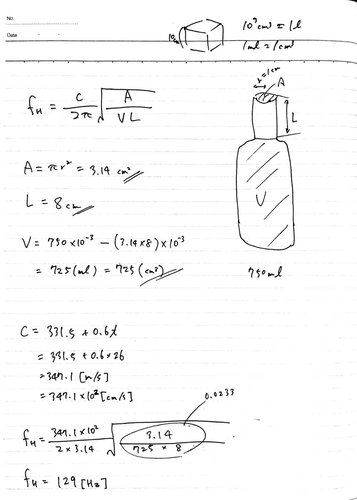 No.
Date
10
10³cm³ = 1l
1ml = 1cm³
f_H = C/2π √(A/VL)
r=1cm
A
L
V
750ml
A = πr² = 3.14 cm²
L = 8cm
V = 750×10⁻³ − (3.14×8)×10⁻³
= 725(ml) = 725(cm³)
C = 331.5 + 0.6t
= 331.5 + 0.6×26
= 347.1 [m/s]
= 347.1×10² [cm/s]
0.0233
f_H = 347.1×10²/2×3.14 √(3.14/725×8)
f_H = 129 [Hz]